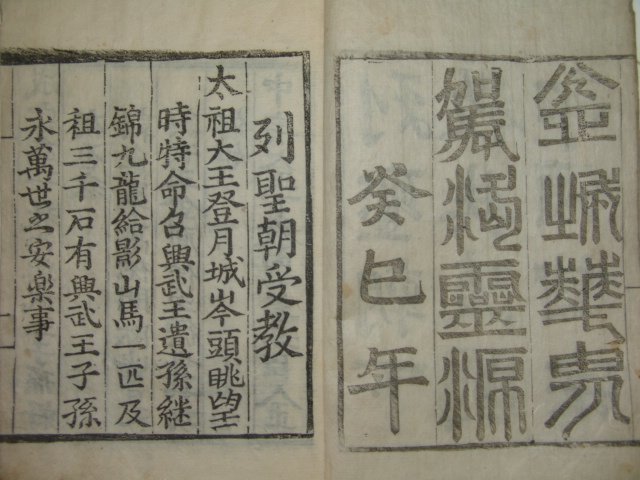 金城華胄
駕洛靈源
癸巳年
列聖朝受教
太祖大王登月城岑頭眺望
時特命召興武王遺孫継
錦九龍給影山馬一匹及
祖三千石有興武王子孫
永萬世之安樂事